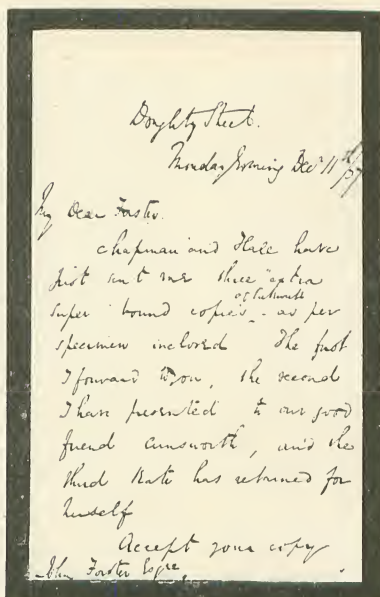 Doughty Street.
Monday Evening Dec 11th /37
My Dear Forster.
Chapman and Hall have
just sent me three "extra
of Pickwick
super" bound copies - as per
specimen inclosed The first
I forward to you, the second
I have presented to our good
friend Ainsworth, and the
third Kate has retained for
herself
Accept your copy
John Forster Esqre